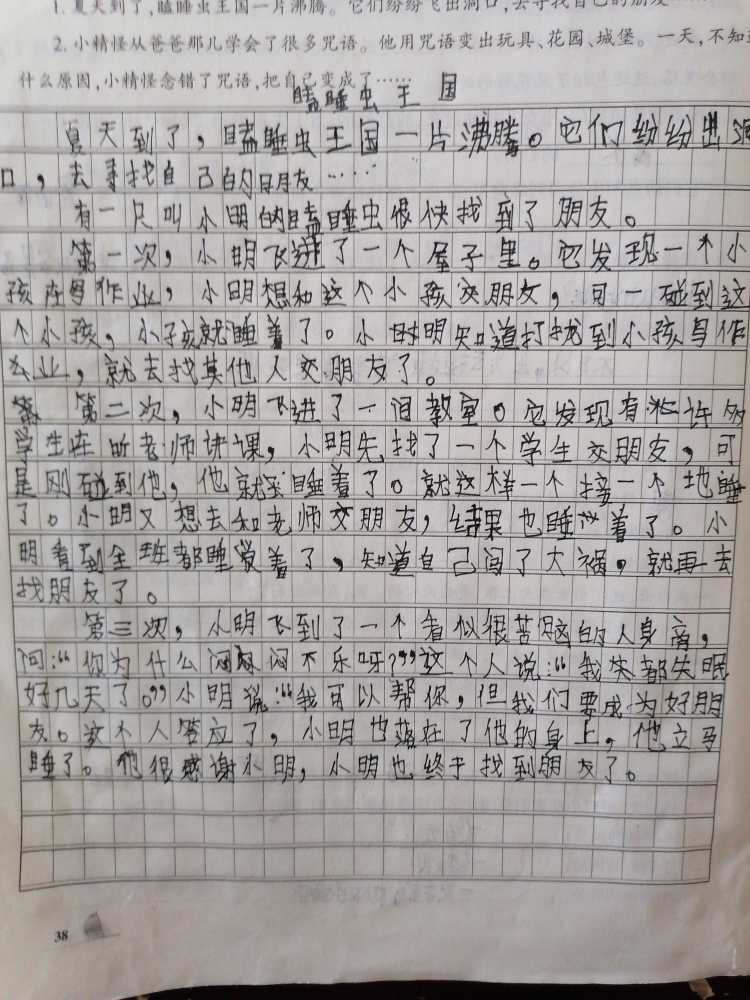 1. 夏天到了,瞌睡虫王国一片沸腾。它们纷纷飞出洞口,去寻找自己的朋友……
2. 小精怪从爸爸那儿学会了很多咒语。他用咒语变出玩具、花园、城堡。一天,不知
什么原因,小精怪念错了咒语,把自己变成了……
瞌睡虫王国
夏天到了,瞌睡虫王国一片沸腾。它们纷纷出洞
口,去寻找自己的朋友……
有一只叫小明的瞌睡虫很快找到了朋友。
第一次,小明飞进了一个屋子里。它发现一个小
孩在写作业,小明想和这个小孩交朋友,可一碰到这
个小孩,小孩就睡着了。小明知道打扰到小孩写作
业,就去找其他人交朋友了。
第二次,小明飞进了一间教室。它发现有许多
学生在听老师讲课,小明先找了一个学生交朋友,可
是刚碰到他,他就睡着了。就这样一个接一个地睡
了。小明又想去和老师交朋友,结果也睡着了。小
明看到全班都睡着了,知道自己闯了大祸,就再去
找朋友了。
第三次,小明飞到了一个看似很苦恼的人身旁,
问:“你为什么闷闷不乐呀?”这个人说:“我失都失眠
好几天了。”小明说:“我可以帮你,但我们要成为好朋
友。这个人答应了,小明也落在了他的身上,他立马
睡了。他很感谢小明,小明也终于找到朋友了。
38